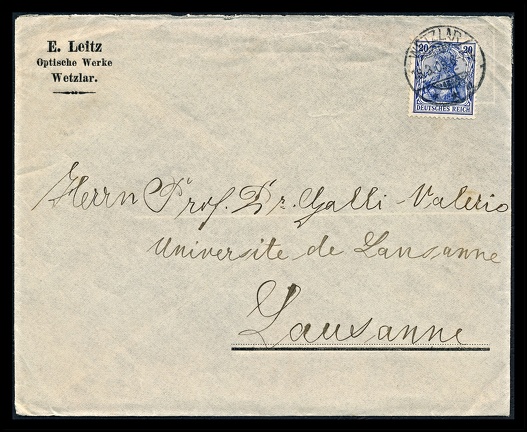 E. Leitz
Optische Werke
Wetzlar.
WETZLAR
20 20
DEUTSCHES REICH
Herrn Prof. Dr. Galli-Valerio
Universite de Lausanne
Lausanne